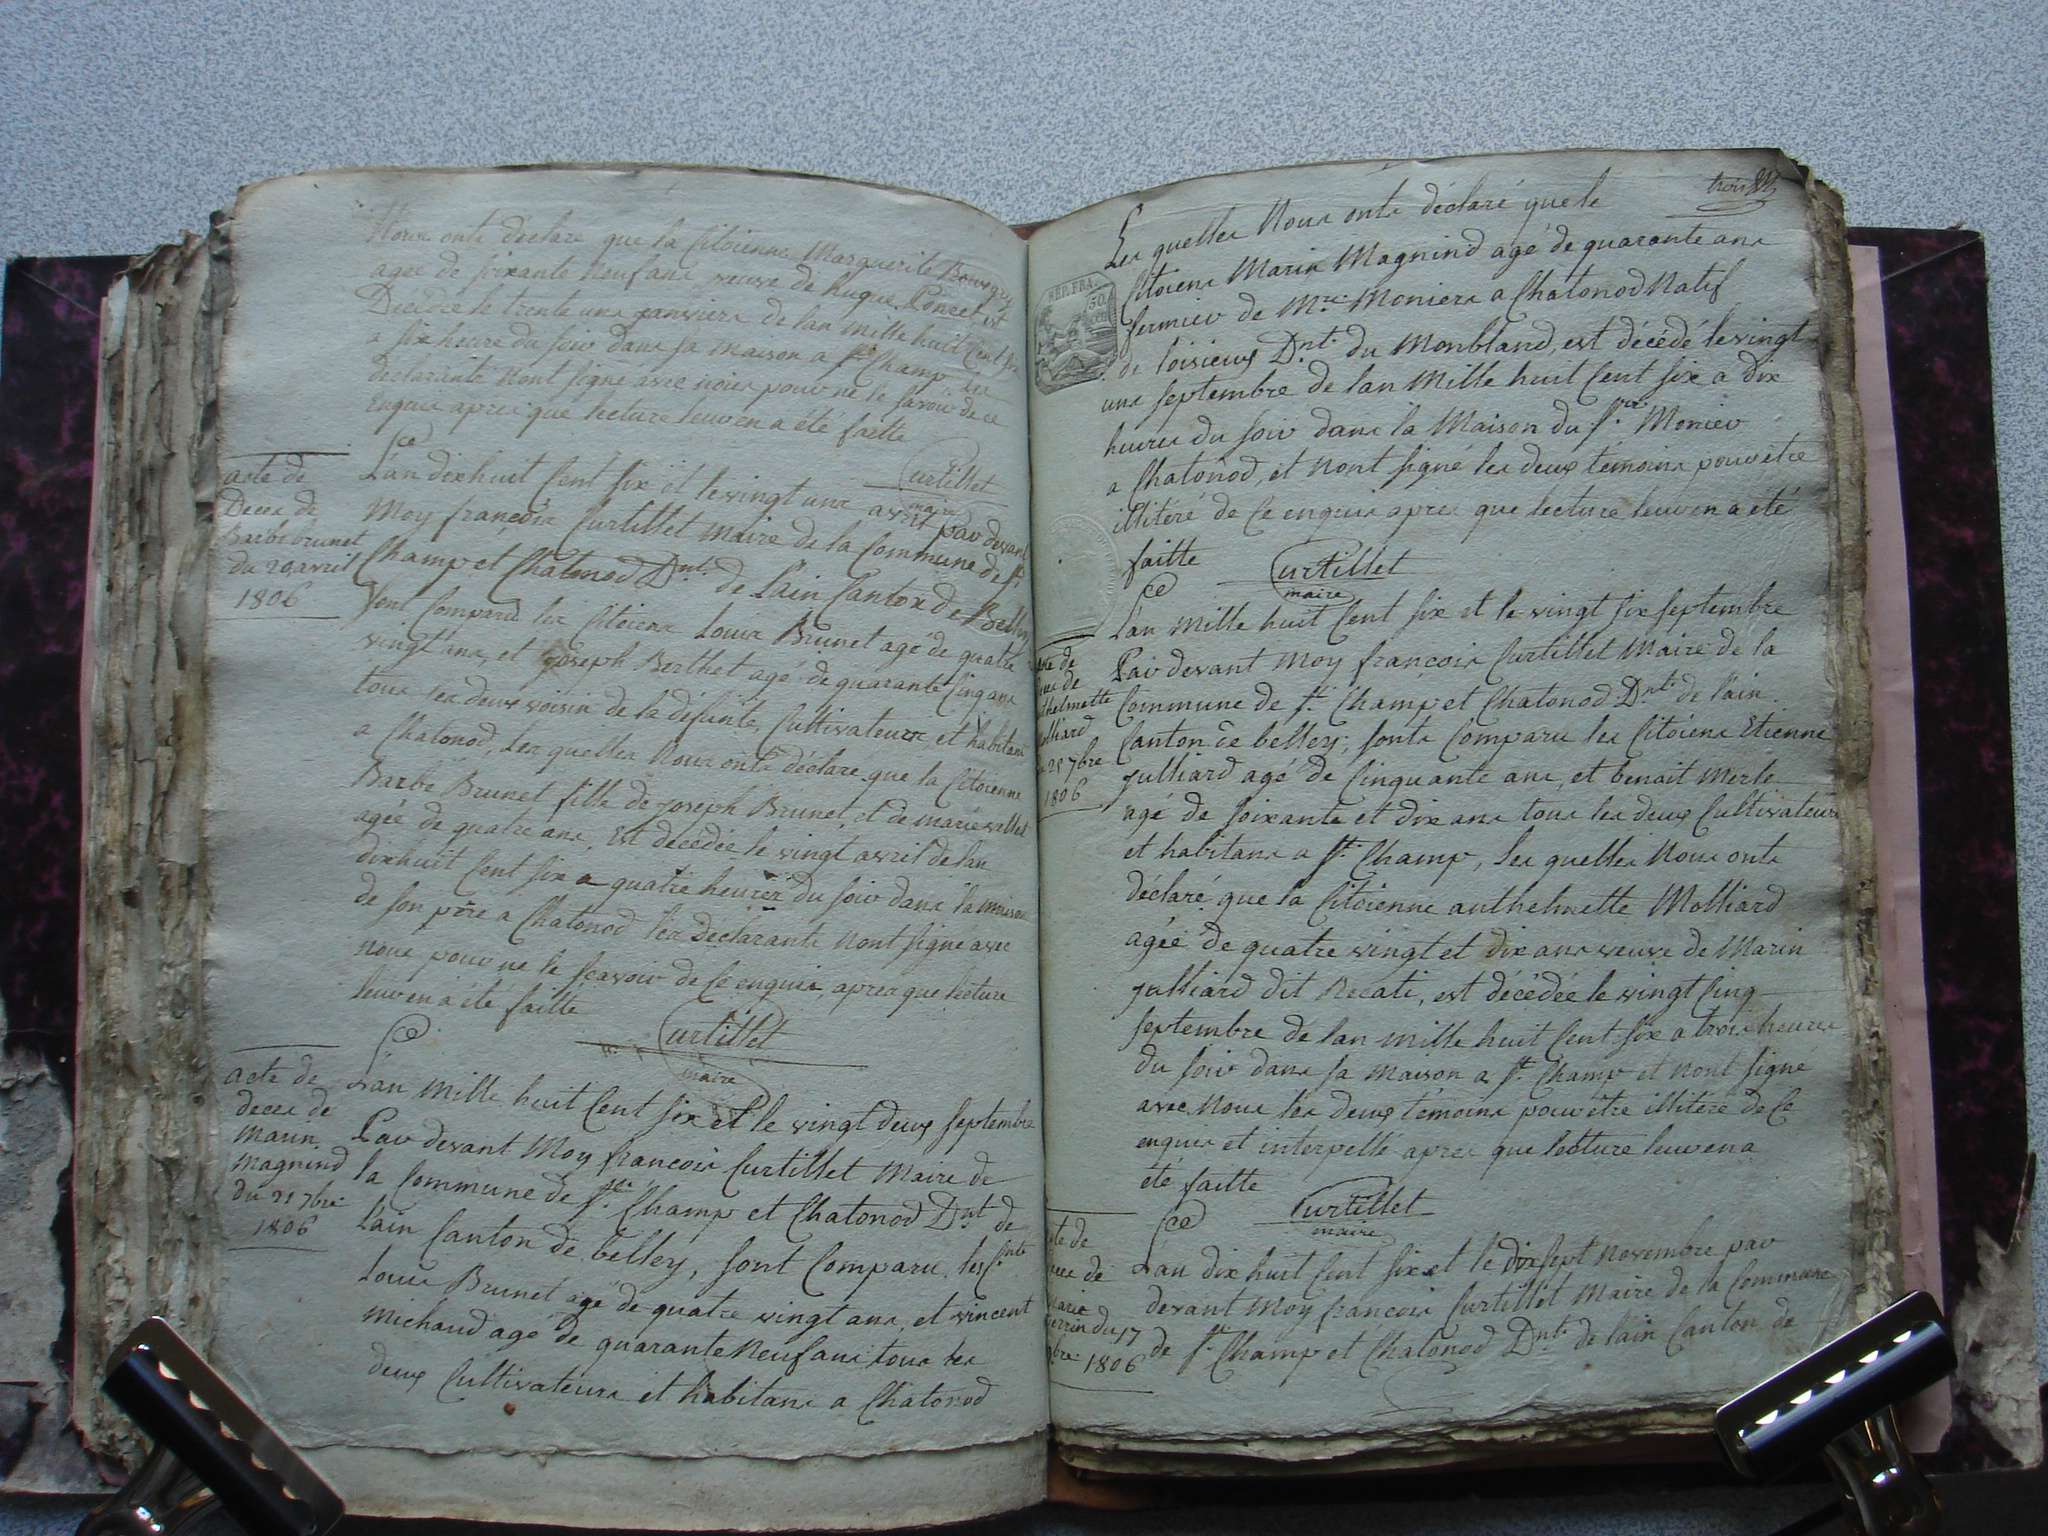 Nous onts déclaré que la Citoienne Marguerite
agée de soixante neuf ans veuve de hugue Poncet, est
Décédée le trente uns janviers de lan mille huit Cent six
a six heure du soir dans sa maison a St. Champ, les
declarants nont signé avec nous pour ne le savoir de ce
Enquis apres que lecture leur en a été faitte
Curtillet
maire
acte de
Deces de
Barbe brunet
du 20 avril
1806
Lan dixhuit Cent six et le vingt uns avril par devant
Moy françois Curtillet Maire de la Commune de St.
Champ et Chatonod Dnt. de Lain Canton de Belley
Sont Comparu les Citoiens Louis Brunet agé de quatre
vingt ans, et Joseph Berthet agé de quarante Cinq ans
tous les deux voisin de la défunte, Cultivateurs, et habitans
a Chatonod, Les quelles Nous onts déclaré que la Citoienne
Barbe Brunet fille de joseph Brunet et de marie
agée de quatre ans, Est décédée le vingt avril de lan
dixhuit Cent six a quatre heures du soir dans la maison
de son père a Chatonod les Déclarants nont signé avec
nous pour ne le sçavoir de Ce enquis, apres que lecture
leur en a été faitte
Curtillet
maire
acte de
deces de
Marin
Magnind
du 21 7bre
1806
Lan Mille huit Cent six et le vingt deux Septembre
Par devant Moy françois Curtillet Maire de
la Commune de St. Champ et Chatonod Dnt de
Lain Canton de belley, sont Comparu, les Cnts.
Louis Brunet agé de quatre vingt ans, et vincent
Michaud agé de quarante Neuf ans tous les
deux Cultivateurs et habitans a Chatonod
trois
Les quelles Nous onts déclaré que le
REP. FRA.
50
Citoiens Marin Magnind agé de quarante ans
fermier de Mr. Moniers a Chatonod Natif
de loisieux Dnt. du Monbland, est décédé le vingt
uns septembre de lan Mille huit Cent six a dix
heures du soir dans la Maison du Sr. Monier
a Chatonod, et nont signé les deux témoins pour être
illitéré de Ce enquis apres que lecture leur en a été
faitte
Curtillet
maire
acte de
deces de
anthelmette
Molliard
du 25 7bre
1806
Lan Mille huit Cent six et le vingt six septembre
Par devant Moy francois Curtillet Maire de la
Commune de St. Champ et Chatonod Dnt. de lain
Canton de belley; sonts Comparu les Citoiens Etienne
julliard agé de Cinquante ans, et benoit Merle
agé de soixante et dix ans tous les deux Cultivateurs
et habitans a St. Champ, Les quelles Nous onts
déclaré que la Citoienne anthelmette Molliard
agée de quatre vingt et dix ans veuve de Marin
julliard dit Recati, est décédée le vingt Cinq
septembre de lan Mille huit Cent six a trois heures
du soir dans sa Maison a St. Champ et nont signé
avec Nous les deux témoins pour être illitéré de Ce
enquis et interpellé apres que lecture leur en a
été faitte
Curtillet
maire
acte de
deces de
Marie
du 17
9bre 1806
Lan dix huit Cent six et le dix sept Novembre par
devant Moy francois Curtillet Maire de la Commune
de St. Champ et Chatonod Dnt. de lain Canton de